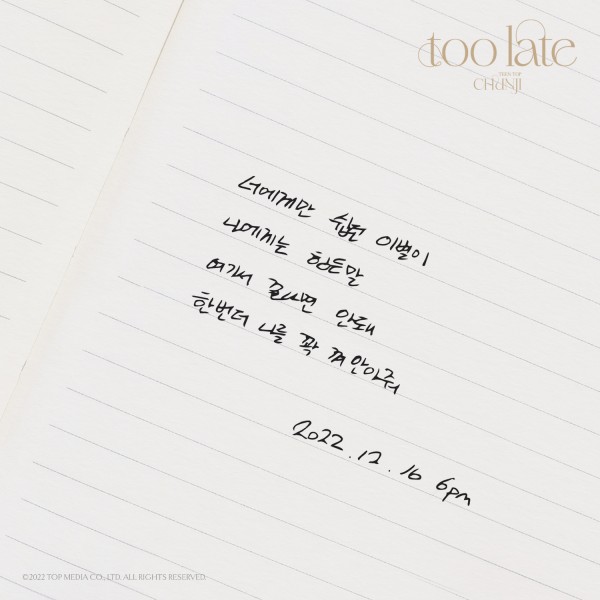 too late
TEEN TOP
CHUNJI
너에게만 쉽던 이별이
나에게는 힘든말
여기서 끝나면 안돼
한번더 나를 꽉 껴안아줘
2022.12.16 6pm
©2022 TOP MEDIA CO., LTD. ALL RIGHTS RESERVED.